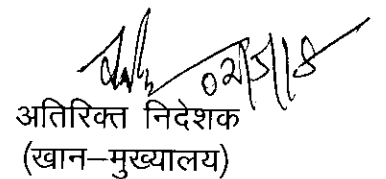 02/5/18
अतिरिक्त निदेशक
(खान–मुख्यालय)